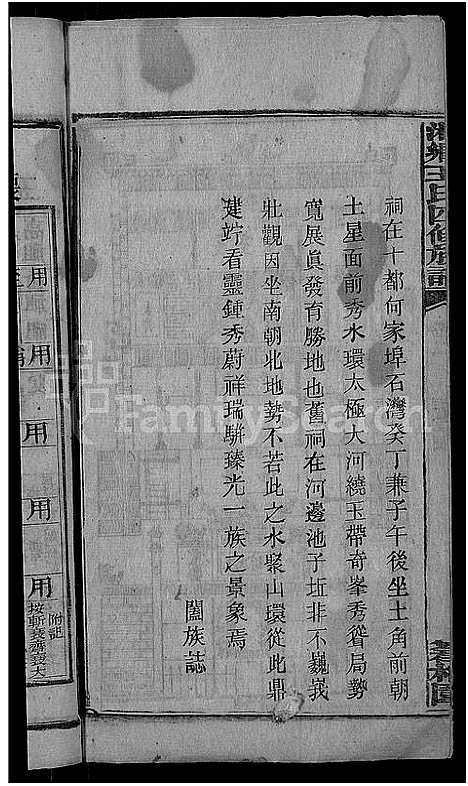 祠在十都何家埠石灣癸丁兼子午後坐土角前朝
土星面前秀水環太極大河繞玉帶奇峯秀聳局勢
寬展眞發育勝地也舊祠在河邊池子坵非不巍峩
壯觀因坐南朝北地勢不若此之水聚山環從此鼎
建竚看靈鍾秀蔚祥瑞駢臻光一族之景象焉
闔族誌
王氏四修族譜
用
用
用
用
用
附記
FamilySearch